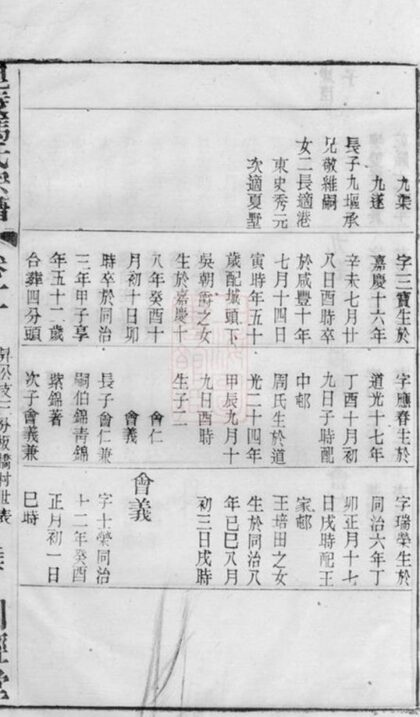 九渠
九遂
長子九堰承
兄敬維嗣
女二長適港
東史秀元
次適夏墅
字三寶生於
嘉慶十六年
辛未七月廿
八日酉時卒
於咸豐十年
七月十四日
寅時年五十
歲配城頭下
吳朝爵之女
生於嘉慶十
八年癸酉十
月初十日卯
時卒於同治
三年甲子享
年五十二歲
合葬四分頭
字應春生於
道光十七年
丁酉十月初
九日子時配
中邨
周氏生於道
光二十四年
甲辰九月十
九日酉時
生子二
會仁
會義
長子會仁兼
嗣伯錦青錦
紫錦著
次子會義兼
字瑞榮生於
同治六年丁
卯正月十七
日戌時配王
家邨
王培田之女
生於同治八
年己巳八月
初三日戌時
會義
字士榮同治
十二年癸酉
正月初一日
巳時
氏宗譜
公支二分板橋村世表